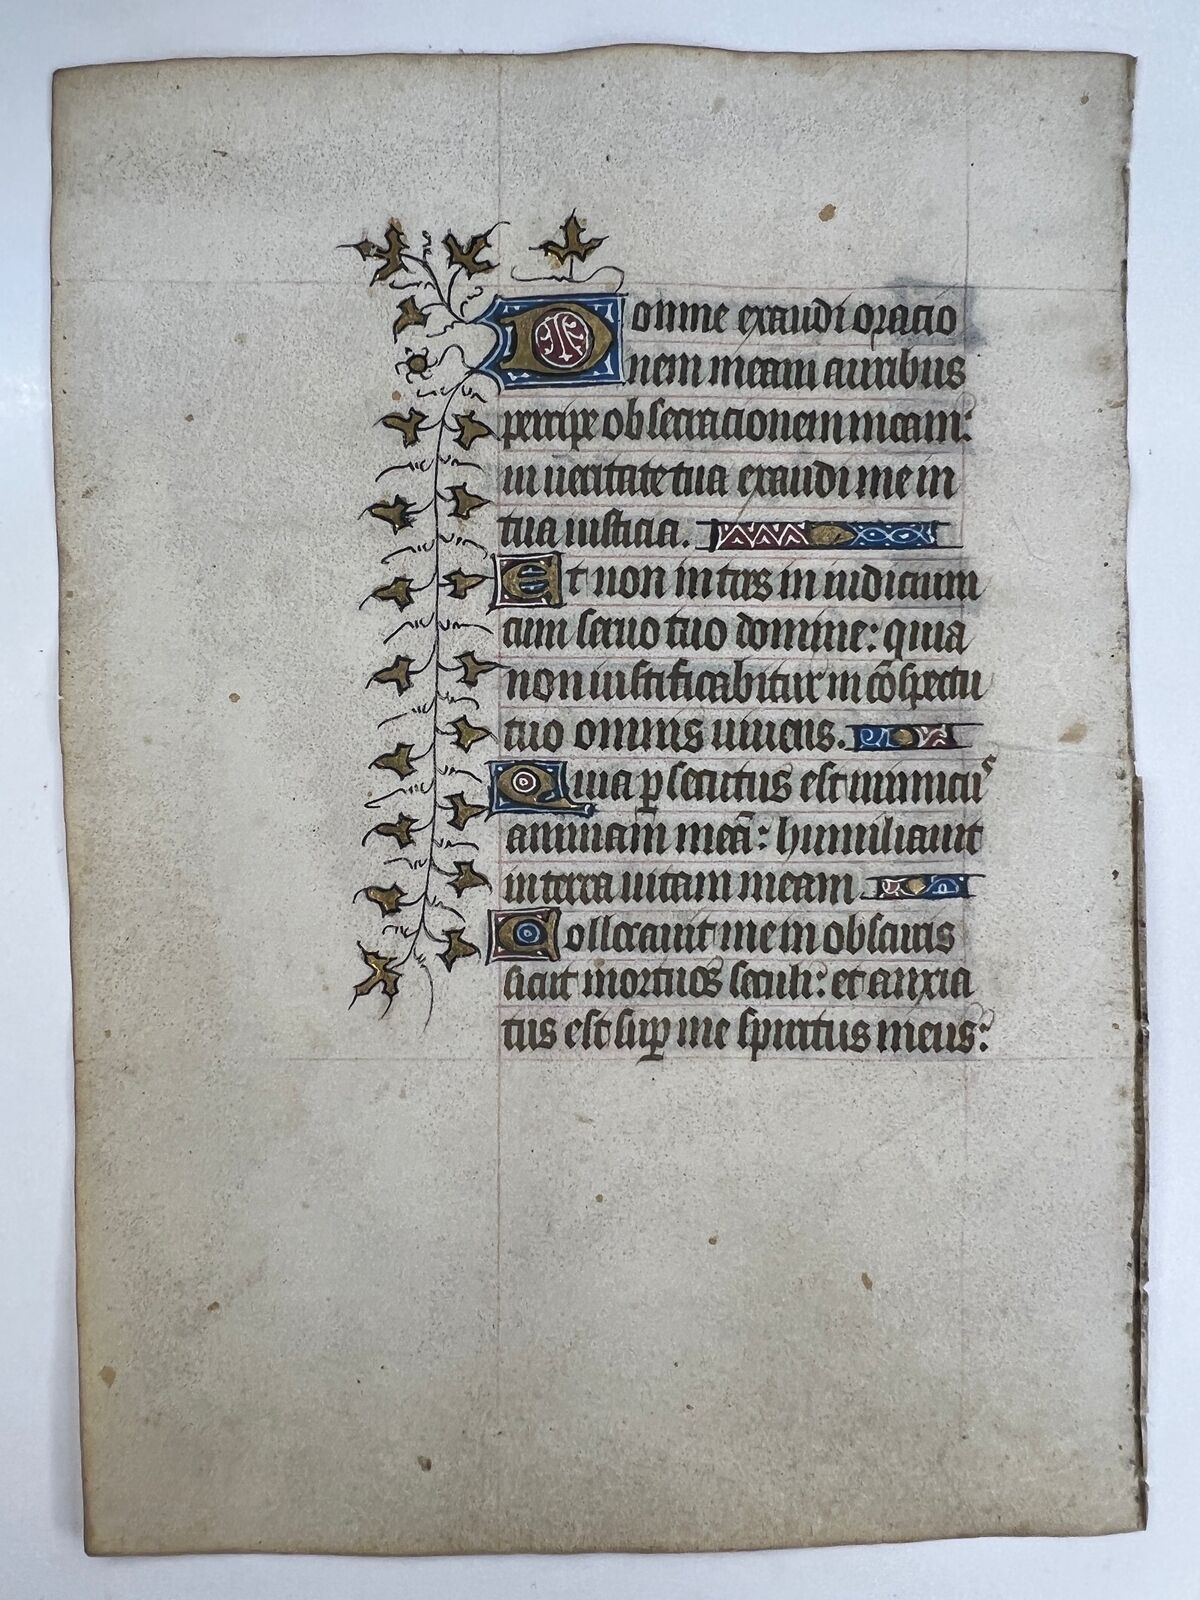 Domine exaudi oracio
nem meam auribus
percipe obsecracionem meam:
in ueritate tua exaudi me in
tua iusticia.
Et non intres in iudicium
cum seruo tuo domine: quia
non iustificabitur in cōspectu
tuo omnis uiuens.
Quia ꝑsecutus est inimicuˢ
animam meā: humiliauit
in terra uitam meam
Collocauit me in obscuris
sicut mortuos seculi: et anxia
tus est suꝑ me spiritus meus: